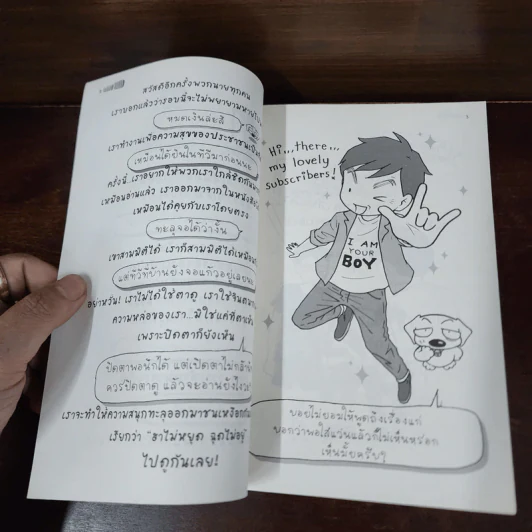 สวัสดีอีกครั้งพวกนายทุกคน
เราบอกแล้วว่ารอบนี้จะไม่พยายามหายไป
หมดเงินล่ะสิ
เราทำงานเพื่อความสุขของประชาชน
เหมือนได้ยินในทีวีมาก่อนนะ
ครั้งนี้...เราอยากให้พวกเราใกล้ชิดกัน
เหมือนอ่านแล้ว เราออกมาจากในหนัง
เหมือนได้คุยกับเราโดยตรง
ทะลุจอได้ว่างั้น
เขาสามมิติได้ เราก็สามมิติได้เหมือน
แต่ทีวีที่บ้านยังจอแก้วอยู่เลยนะ
อย่าหวั่น! เราไม่ได้ใช้ตาดู เราใช้จิต
ความหล่อของเรา...มิใช่แค่ที่ตา
เพราะปิดตาก็ยังเห็น
ปิดตาพอนึกได้ แต่เปิดตาไม่
ควรปิดตาดู แล้วจะอ่านยังไง
เราจะทำให้ความสนุกทะลุออกมาชน
เรียกว่า "ฮาไม่หยุด ฉุดไม่อยู่"
ไปดูกันเลย!
Hi,,,there,,,
my lovely
subscribers!
I AM
YOUR
BOY
บอยไม่ยอมให้พูดถึงเรื่องแก่
บอกว่าพอใส่แว่นแล้วก็ไม่เห็นหรอก
เห็นมั้ยครับๆ